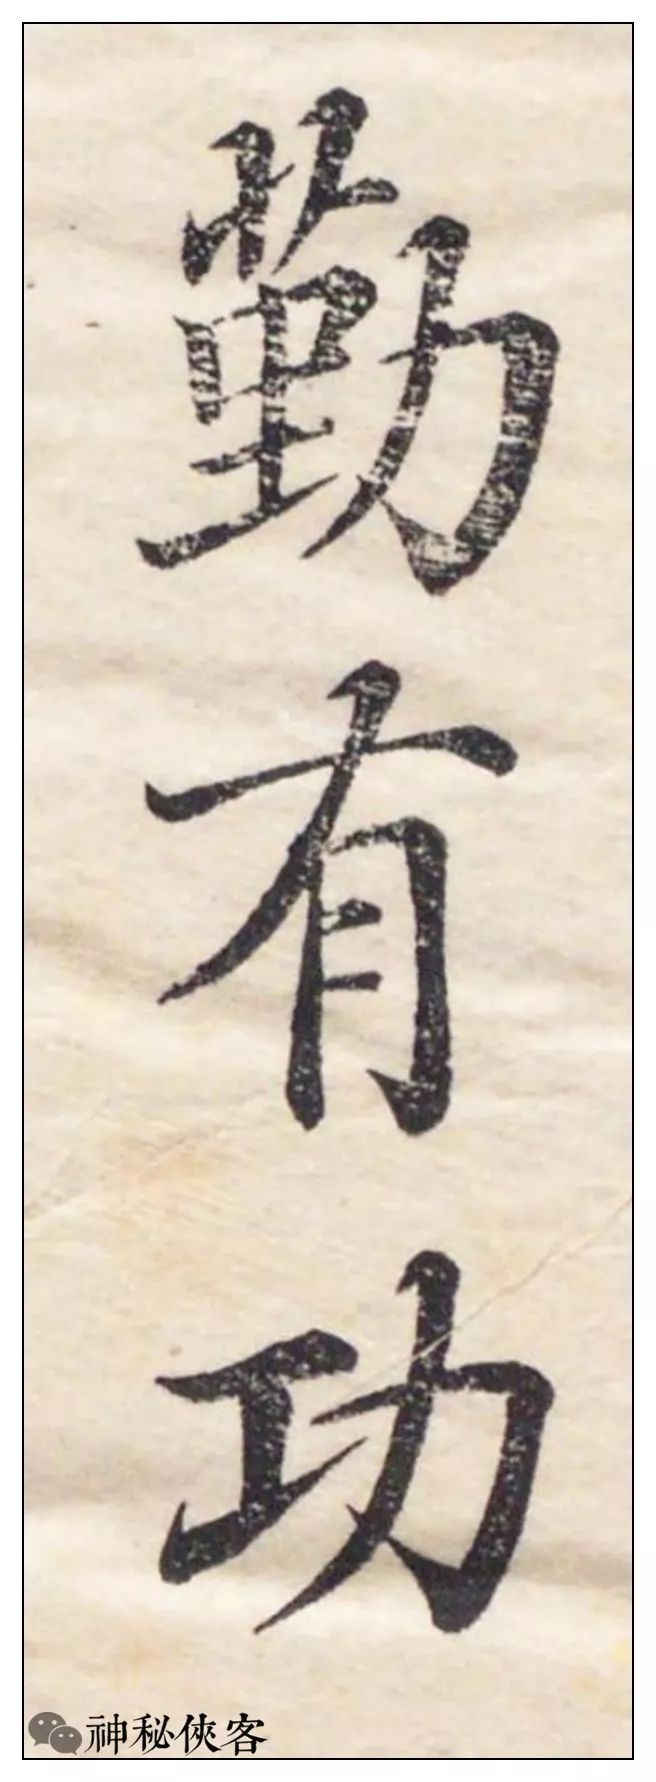 勤有功
神秘俠客